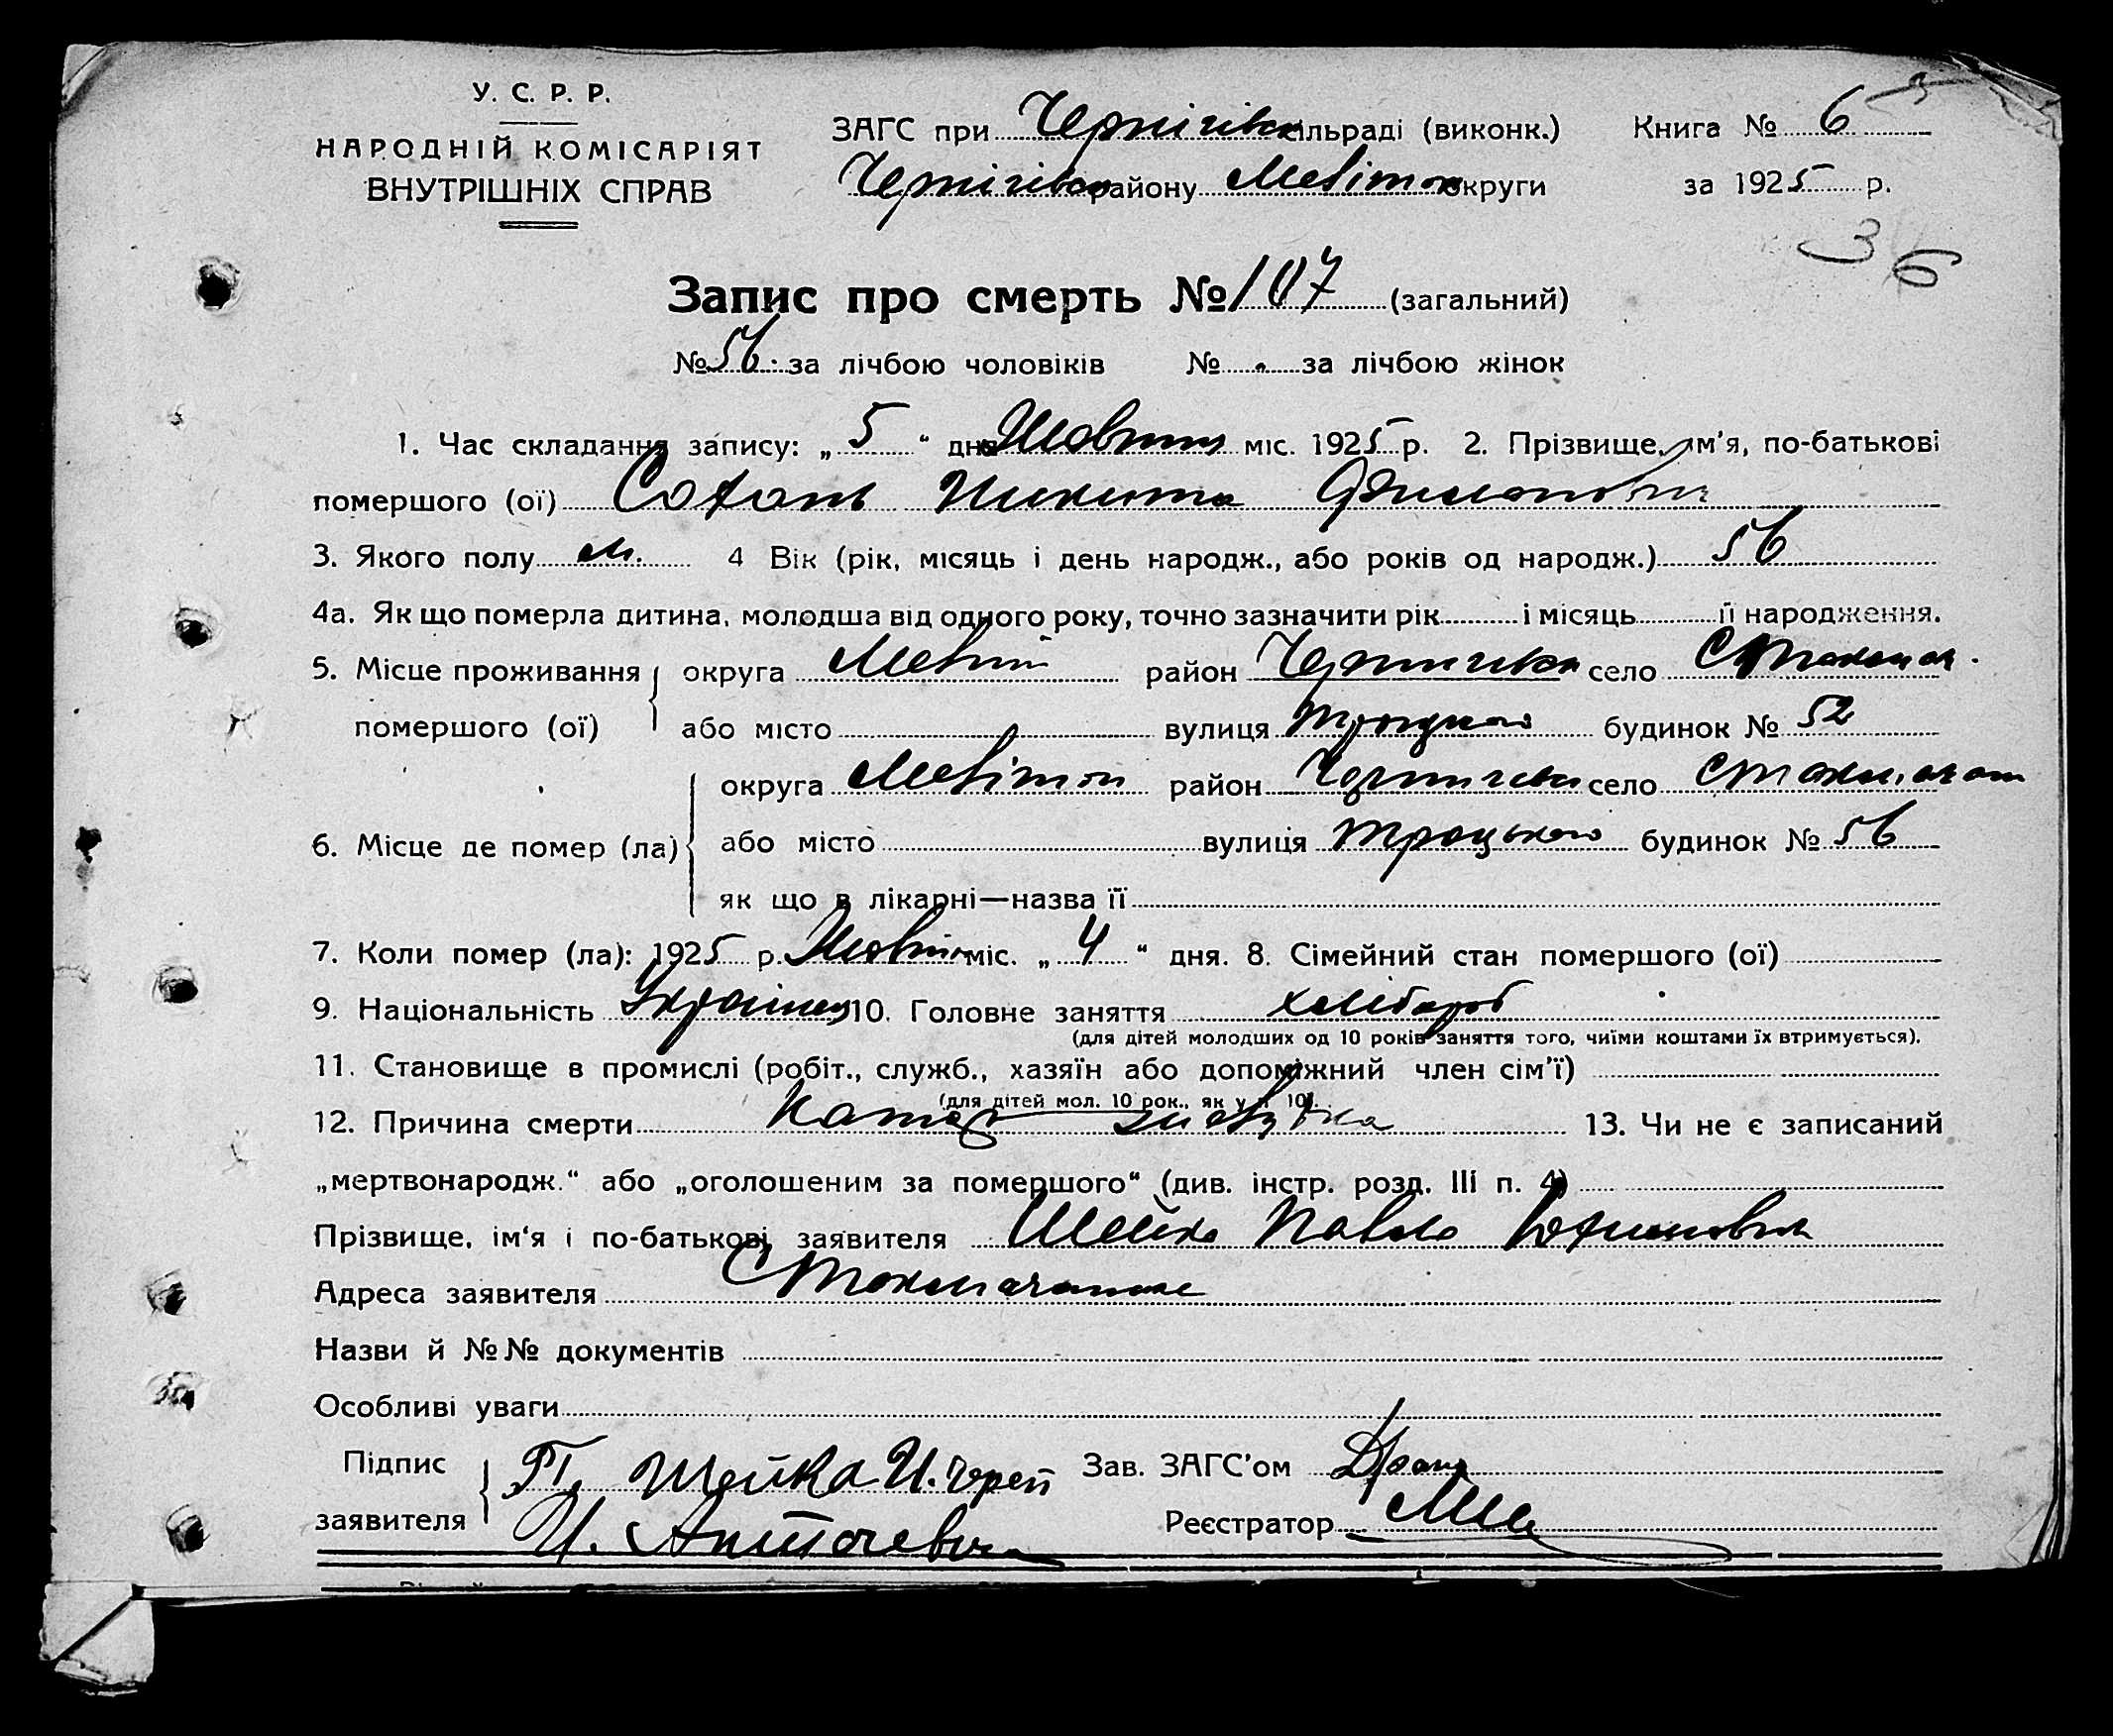 У. С. Р. Р.
НАРОДНІЙ КОМІСАРІЯТ
ВНУТРІШНІХ СПРАВ
ЗАГС при Чернігівс сільраді (виконк.) Книга № 6
Чернігівс району Мелітоп округи за 1925 р.
36
Запис про смерть № 107 (загальний)
№ 56 за лічбою чоловіків № за лічбою жінок
1. Час складання запису: „ 5 “ дня Жовтня міс. 1925 р. 2. Прізвище, ім'я, по-батькові
помершого (ої) Сохань Никита
3. Якого полу м. 4 Вік (рік, місяць і день народж., або років од народж.) 56
4а. Як що померла дитина, молодша від одного року, точно зазначити рік і місяць її народження.
5. Місце проживання округа Меліт район Чернигівсь село Стокопан.
помершого (ої) або місто вулиця Троцького будинок № 52
округа Мелітоп район Чернигівсь село
6. Місце де помер (ла) або місто вулиця Троцького будинок № 56
як що в лікарні—назва її
7. Коли помер (ла): 1925 р. Жовтня міс. „ 4 “ дня. 8. Сімейний стан помершого (ої)
9. Національність Українець 10. Головне заняття хлібороб
(для дітей молодших од 10 років заняття того, чиїми коштами їх втримується).
11. Становище в промислі (робіт., служб., хазяїн або допоміжний член сім'ї)
(для дітей мол. 10 рок., як у п 10).
12. Причина смерти Катар шлунка 13. Чи не є записаний
„мертвонародж.“ або „оголошеним за помершого“ (див. інстр. розд. III п. 4)
Прізвище, ім'я і по-батькові заявителя Шейко Павло
Адреса заявителя
Назви й №№ документів
Особливі уваги
Підпис Шейка И. Зав. ЗАГС'ом
заявителя И. Реєстратор